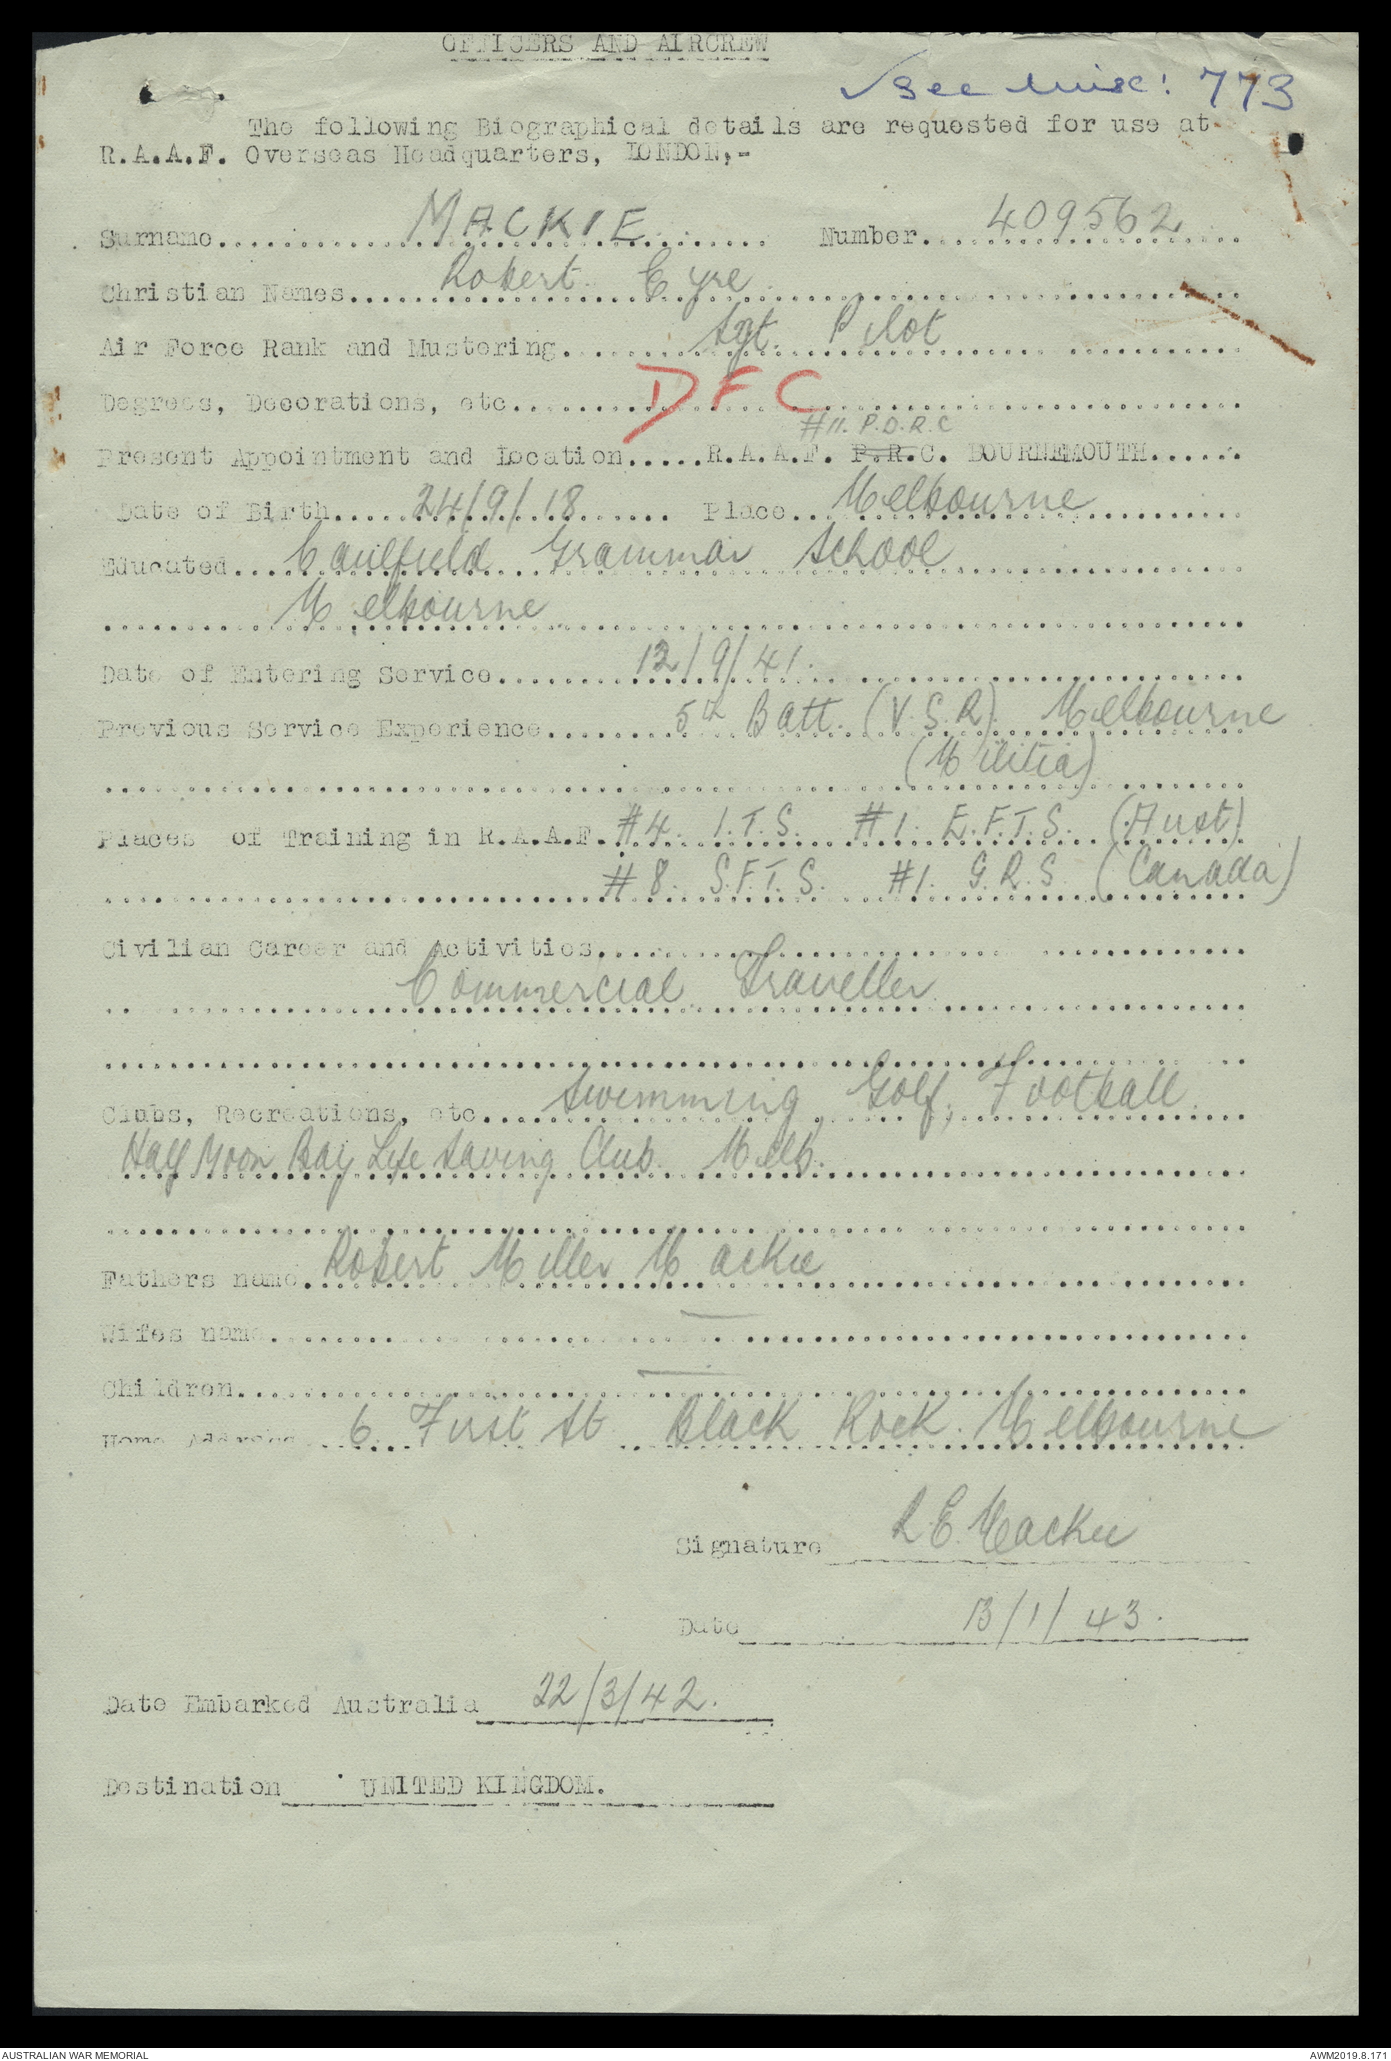 OFFICERS AND AIRCREW
✓ See Misc: 773
The following Biographical details are requested for use at
R.A.A.F. Overseas Headquarters, LONDON,-
Surname MACKIE Number 409562
Christian Names Robert Eyre
Air Force Rank and Mustering Sgt. Pilot
Degrees, Decorations, etc DFC
#11. P.D.R.C
Present Appointment and Location R.A.A.F. P.R.C. BOURNEMOUTH
Date of Birth 24/9/18 Place Melbourne
Educated Caulfield Grammar School
Melbourne
Date of Entering Service 12/9/41.
Previous Service Experience 5th Batt. (V.S.R). Melbourne
(Militia)
Places of Training in R.A.A.F. #4. I.T.S. #1. E.F.T.S. (Aust)
#8. S.F.T.S. #1. G.R.S. (Canada)
Civilian Career and Activities
Commercial Traveller
Clubs, Recreations, etc Swimming, Golf, Football.
Half Moon Bay Life Saving Club. Melb.
Fathers name Robert Miller Mackie
Wifes name —
Children —
Home Address 6 First St Black Rock. Melbourne
Signature R.E. Mackie
Date 13/1/43.
Date Embarked Australia 22/3/42.
Destination UNITED KINGDOM.
AUSTRALIAN WAR MEMORIAL AWM2019.8.171